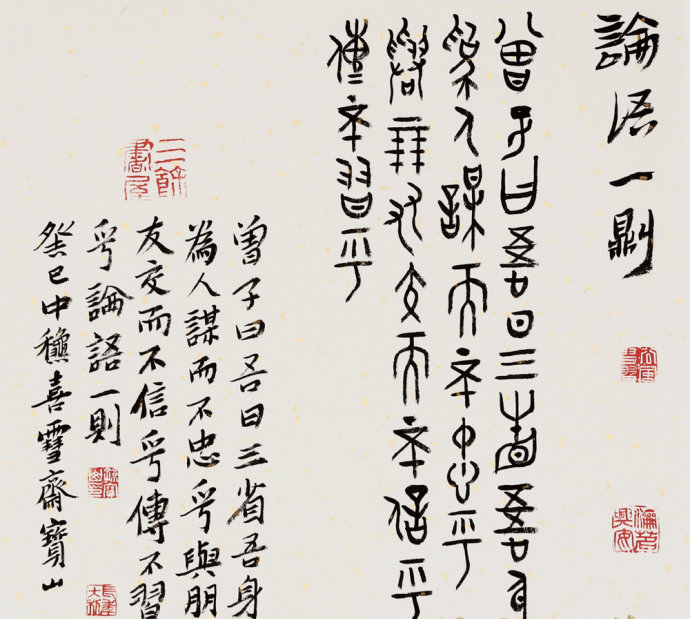 論語一則
曾子曰吾日三省吾身
為人謀而不忠乎
與朋友交而不信乎
傳不習乎
三餘書屋
曾子曰吾日三省吾身
為人謀而不忠乎與朋
友交而不信乎傳不習
乎論語一則
癸巳中穐喜雪齋寶山